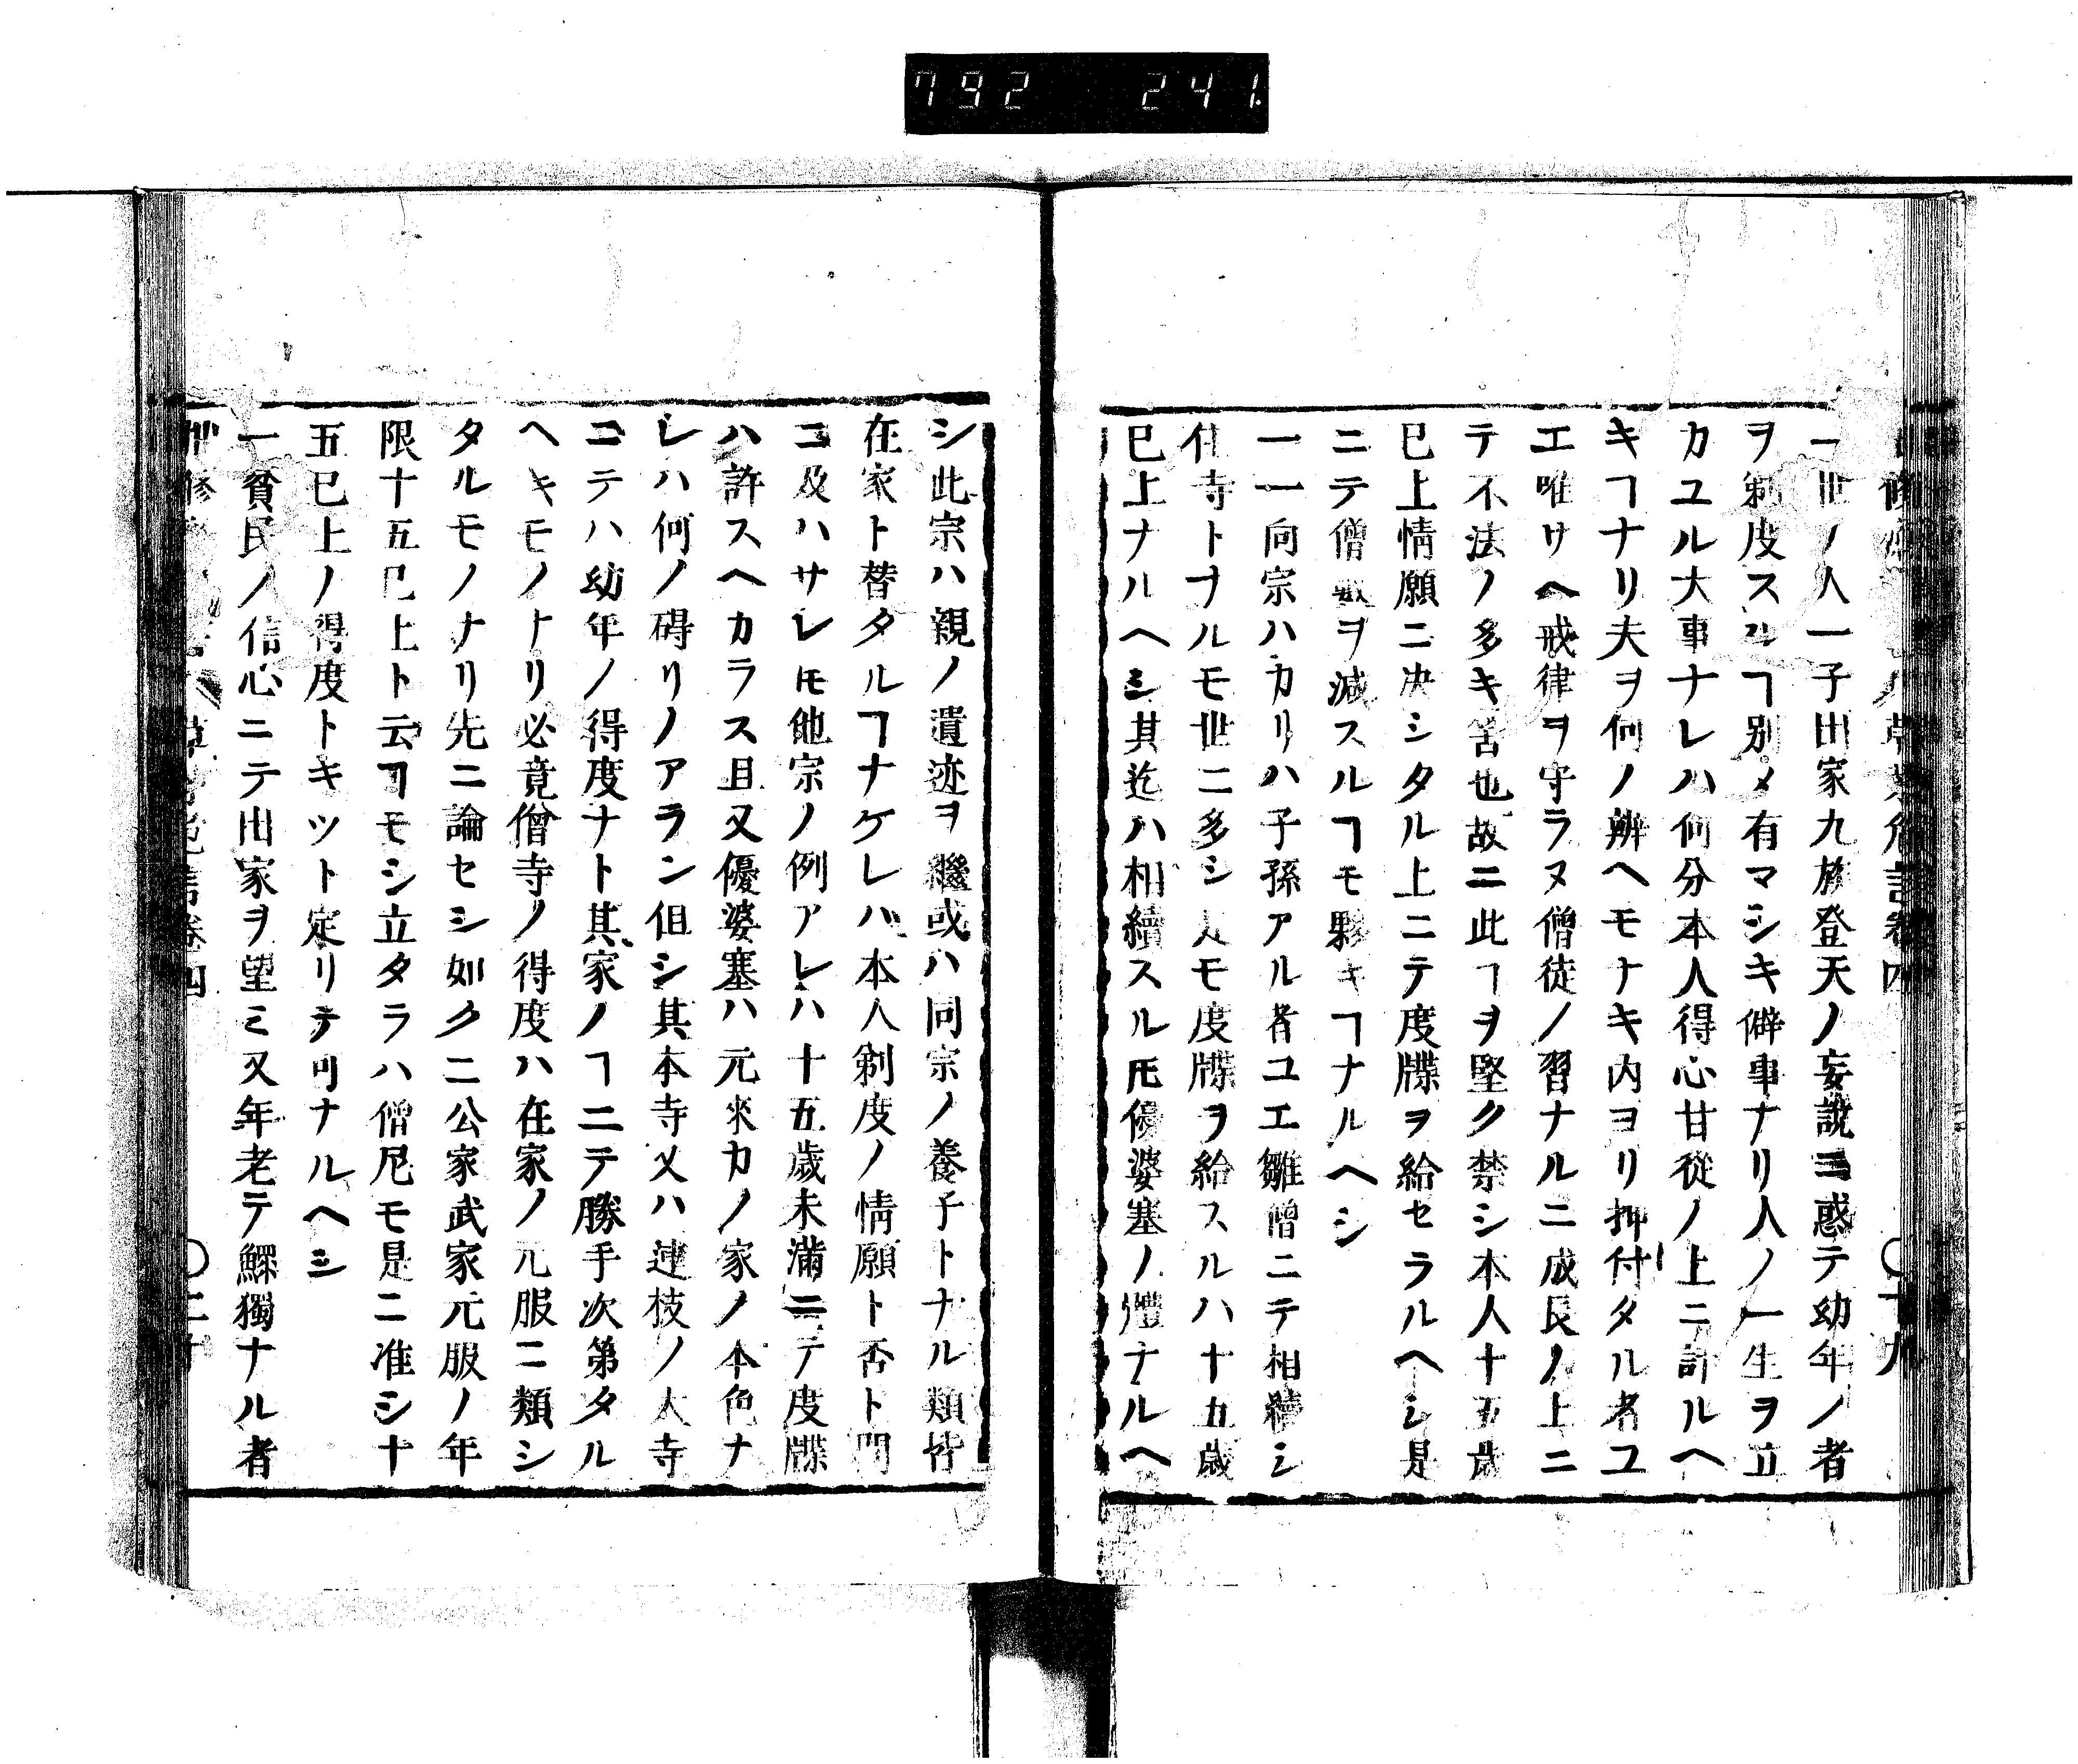 792 241.
一世ノ人一子出家九族登天ノ妄說ヨ惑テ幼年ノ者
ヲ剃度スルヿ別メ有マシキ僻事ナリ人ノ一生ヲ立
カユル大事ナレハ何分本人得心甘從ノ上ニ計ルヘ
キヿナリ夫ヲ何ノ辨ヘモナキ內ヨリ押付タル者ユ
エ唯サヘ戒律ヲ守ラヌ僧徒ノ習ナルニ成長ノ上ニ
テ不法ノ多キ筈也故ニ此ヿヲ堅ク禁シ本人十五歲
已上情願ニ决シタル上ニテ度牒ヲ給セラルヘシ是
ニテ僧數ヲ減スルヿモ夥キヿナルヘシ
一一向宗ハカリハ子孫アル者ユエ雛僧ニテ相續シ
住寺トナルモ世ニ多シ尤モ度牒ヲ給スルハ十五歲
已上ナルヘシ其迄ハ相續スルモ優婆塞ノ體ナルヘ
シ此宗ハ親ノ遺迹ヲ繼或ハ同宗ノ養子トナル類皆
在家ト替タルヿナケレバ本人剃度ノ情願ト否ト問
ニ及ハサレモ他宗ノ例アレハ十五歲未滿ニテ度牒
ハ許スヘカラス且又優婆塞ハ元來カノ家ノ本色ナ
レハ何ノ碍リノアラン但シ其本寺又ハ連枝ノ大寺
ニテハ幼年ノ得度ナト其家ノヿニテ勝手次第タル
ヘキモノナリ必竟僧寺ノ得度ハ在家ノ元服ニ類シ
タルモノナリ先ニ論セシ如クニ公家武家元服ノ年
限十五已上ト云ヿモシ立タラハ僧尼モ是ニ准シ十
五已上ノ得度トキツト定リテ可ナルヘシ
一貧民ノ信心ニテ出家ヲ望ミ又年老テ鰥獨ナル者